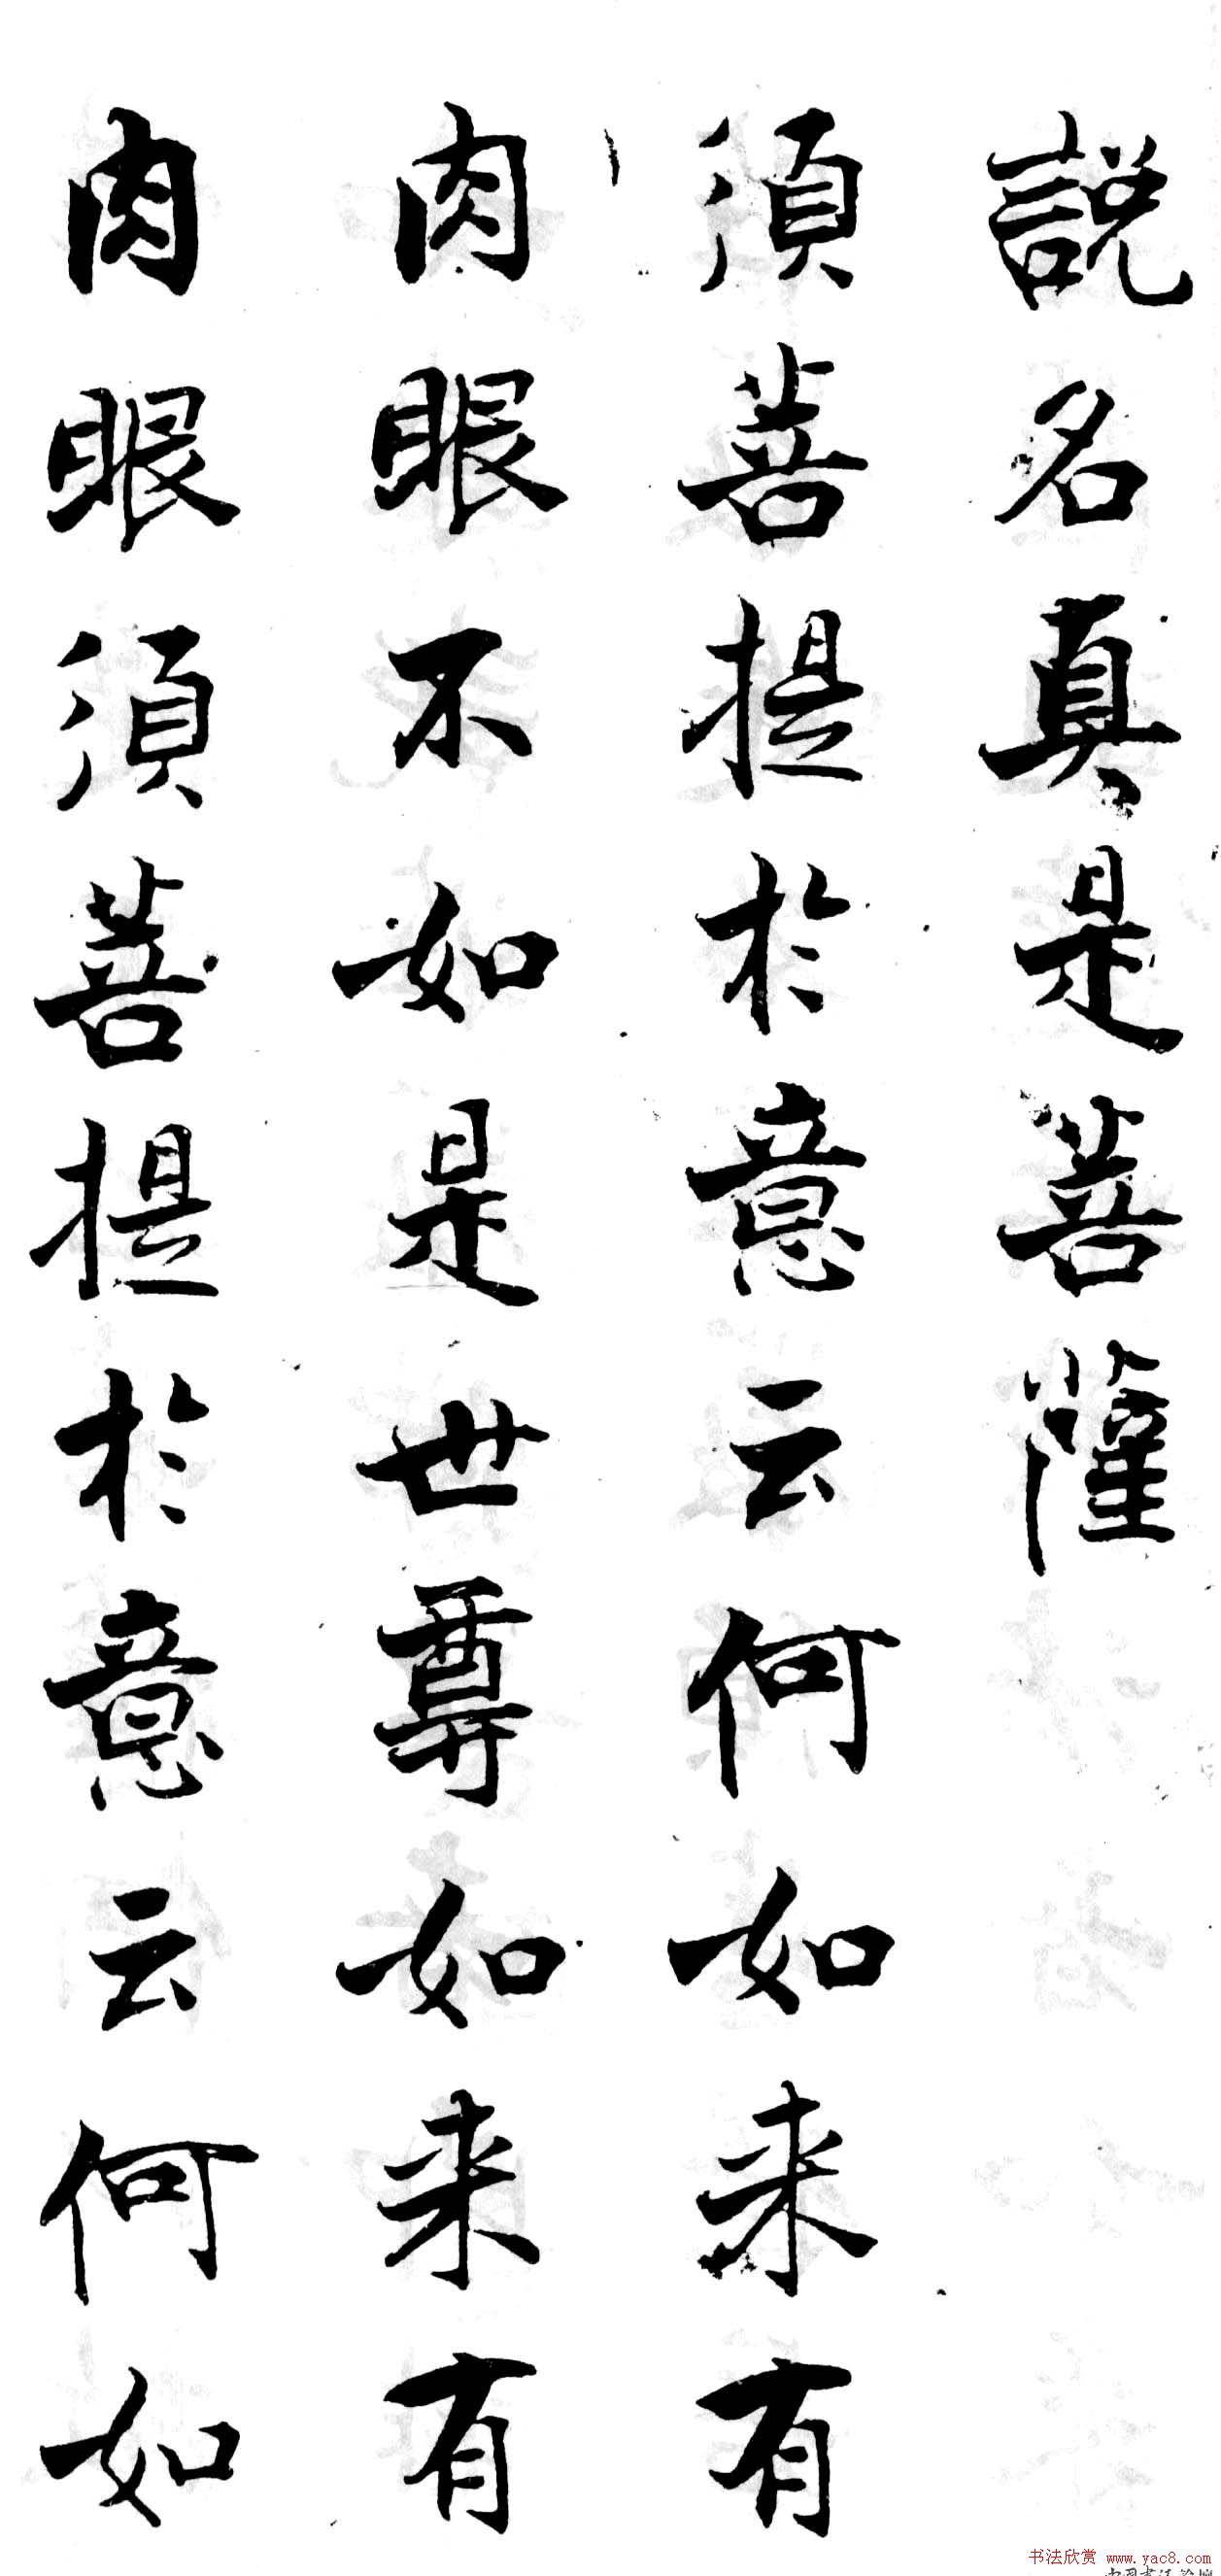 説名真是菩薩
須菩提於意云何如来有
肉眼不如是世尊如来有
肉眼須菩提於意云何如
书法欣赏 www.yac8.com